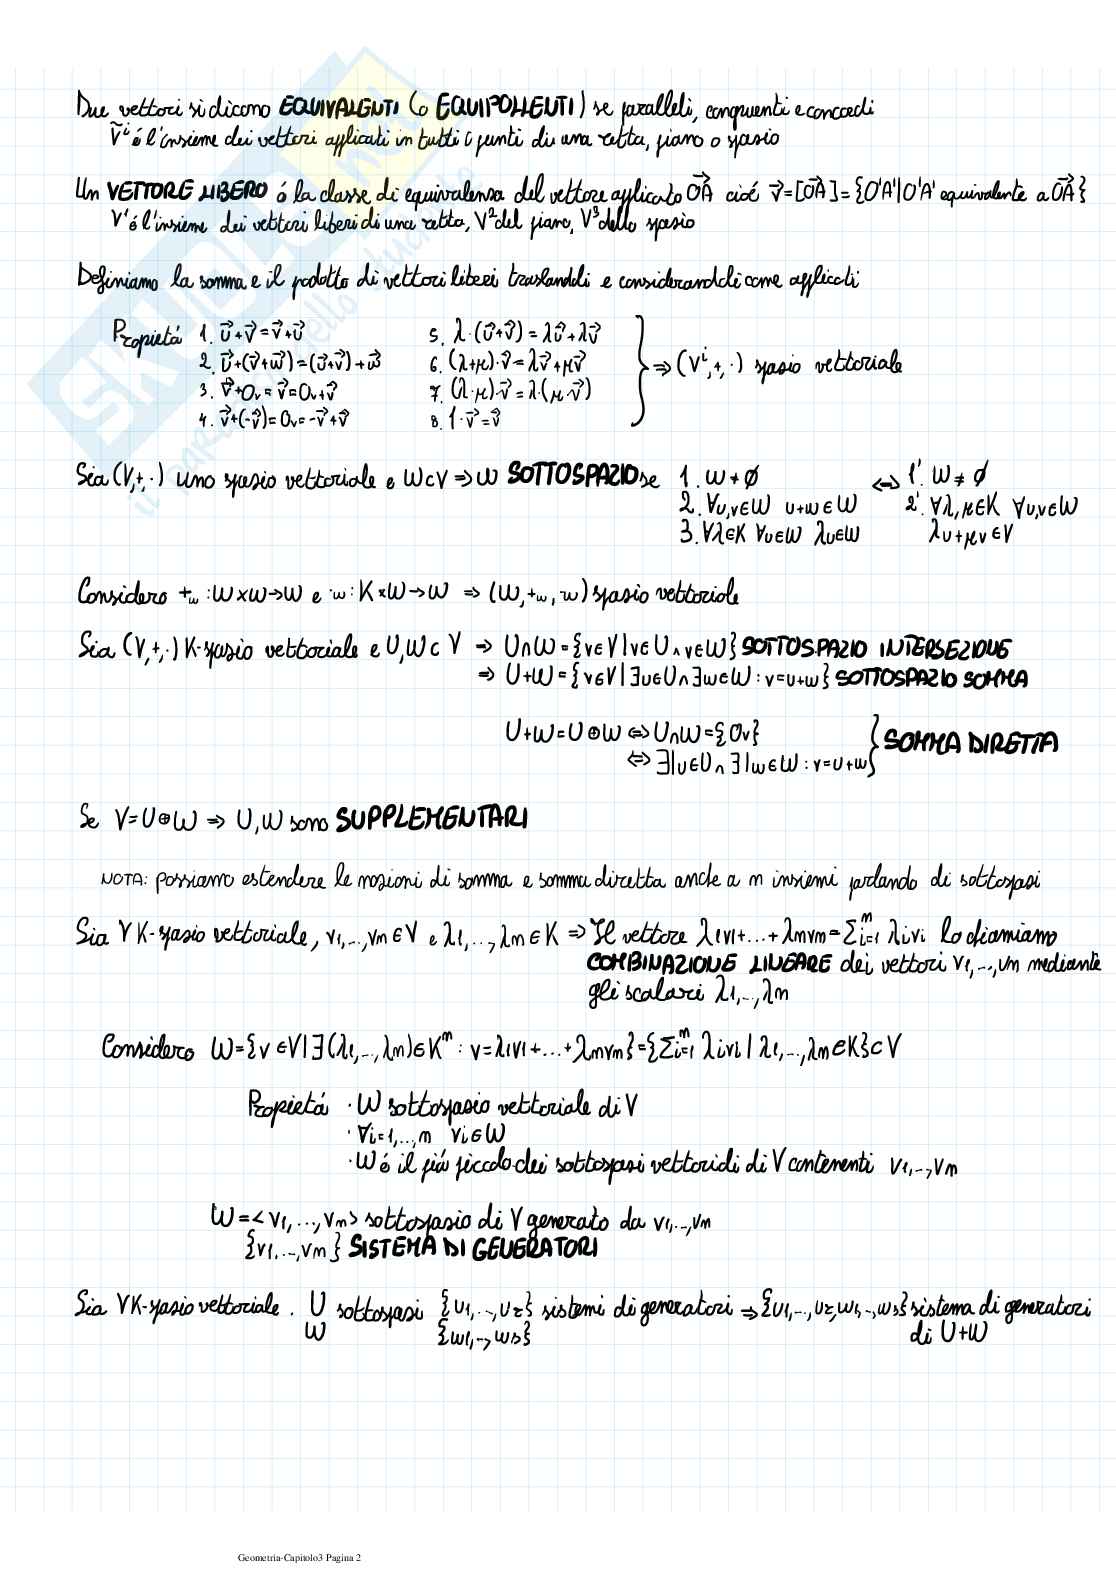 Due vettori si dicono EQUIVALENTI (o EQUIPOLLENTI) se paralleli, congruenti e concordi
Ṽⁱ é l'insieme dei vettori applicati in tutti i punti di una retta, piano o spazio
Un VETTORE LIBERO é la classe di equivalenza del vettore applicato O⃗A cioé v⃗=[O⃗A]={O'A'|O'A' equivalente a O⃗A}
V¹ é l'insieme dei vettori liberi di una retta, V² del piano, V³ dello spazio
Definiamo la somma e il podotto di vettori liberi traslandoli e considerandoli come applicati
Propietá 1. u⃗+v⃗=v⃗+u⃗ 5. λ·(u⃗+v⃗)=λu⃗+λv⃗
2. u⃗+(v⃗+w⃗)=(u⃗+v⃗)+w⃗ 6. (λ+μ)·v⃗=λv⃗+μv⃗ ⇒ (Vⁱ,+,·) spazio vettoriale
3. v⃗+0ᵥ=v⃗=0ᵥ+v⃗ 7. (λ·μ)·v⃗=λ·(μ·v⃗)
4. v⃗+(-v⃗)=0ᵥ=-v⃗+v⃗ 8. 1·v⃗=v⃗
Sia (V,+,·) uno spazio vettoriale e W⊂V ⇒ W SOTTOSPAZIO se 1. W≠∅ ⇔ 1'. W≠∅
2. ∀u,v∈W u+w∈W 2'. ∀λ,μ∈K ∀u,v∈W
3. ∀λ∈K ∀u∈W λu∈W λu+μv∈V
Considero +w : W×W→W e ·w : K×W→W ⇒ (W,+w,·w) spazio vettoriale
Sia (V,+,·) K-spazio vettoriale e U,W⊂V ⇒ U∩W={v∈V|v∈U∧v∈W} SOTTOSPAZIO INTERSEZIONE
⇒ U+W={v∈V|∃u∈U∧∃w∈W : v=u+w} SOTTOSPAZIO SOMMA
U+W=U⊕W ⇔ U∩W={0ᵥ} } SOMMA DIRETTA
⇔ ∃|u∈U∧∃|w∈W : v=u+w
Se V=U⊕W ⇒ U,W sono SUPPLEMENTARI
NOTA: possiamo estendere le nozioni di somma e somma diretta anche a n insiemi parlando di sottospazi
Sia V K-spazio vettoriale, v1,...,vm∈V e λ1,...,λm∈K ⇒ Il vettore λ1v1+...+λmvm=Σᵐi=1 λivi lo chiamiamo
COMBINAZIONE LINEARE dei vettori v1,...,vm mediante
gli scalari λ1,...,λm
Considero W={v∈V|∃(λ1,...,λm)∈Kᵐ : v=λ1v1+...+λmvm}={Σᵐi=1 λivi | λ1,...,λm∈K}⊂V
Propietá · W sottospazio vettoriale di V
· ∀i=1,...,m vi∈W
· W é il piú piccolo dei sottospazi vettoriali di V contenenti v1,...,vm
W=<v1,...,vm> sottospazio di V generato da v1,...,vm
{v1,...,vm} SISTEMA DI GENERATORI
Sia V K-spazio vettoriale. U sottospazi {u1,...,ur} sistemi di generatori ⇒ {u1,...,ur,w1,...,ws} sistema di generatori
W {w1,...,ws} di U+W
Geometria-Capitolo3 Pagina 2